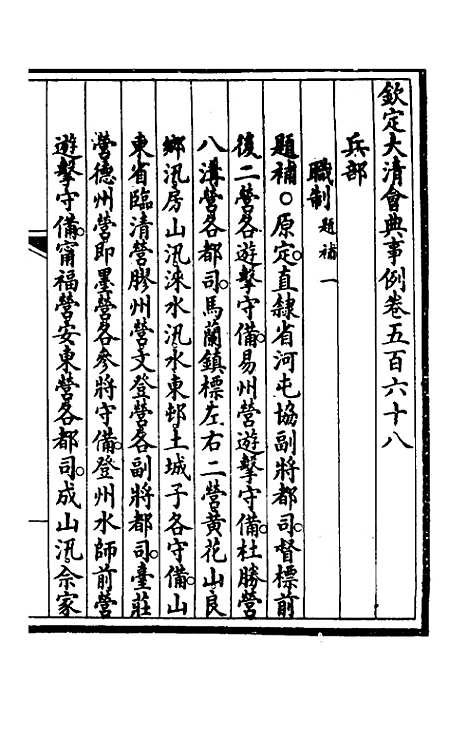 欽定大清會典事例卷五百六十八
兵部
職制 題補一
題補○原定。直隸省河屯協副將都司。督標前
後二營各遊擊守備。易州營遊擊守備。杜勝營
八溝營各都司。馬蘭鎮標左右二營黃花山良
鄉汛房山汛淶水汛水東邨土城子各守備。山
東省臨清營膠州營文登營各副將都司。臺莊
營德州營即墨營各參將守備。登州水師前營
遊擊守備。甯福營安東營各都司。成山汛佘家